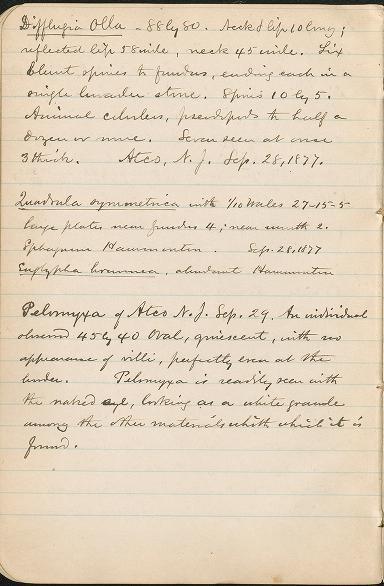 Difflugia Olla - 88 by 80. Neck & lip 10 long;
reflected lip 58 wide, neck 45 wide. Six
blunt spines to fundus, ending each in a
single broader stone. Spines 10 by 5.
Animal colorless, pseudopods to half a
dozen or more. Seven seen at once
3 thick. Atco, N. J. Sep. 28, 1877.
Quadrula symmetrica with 1/10 Wales 27-15-5
large plates near fundus 4; near mouth 2.
Sphagnum Hammonton. Sep. 28, 1877
Euglypha brunnea, abundant Hammonton
Pelomyxa of Atco N. J. Sep. 29. An individual
observed 45 by 40 Oval, quiescent, with no
appearance of villi, perfectly even at the
border. Pelomyxa is readily seen with
the naked eye, looking as a white granule
among the other materials with which it is
found.